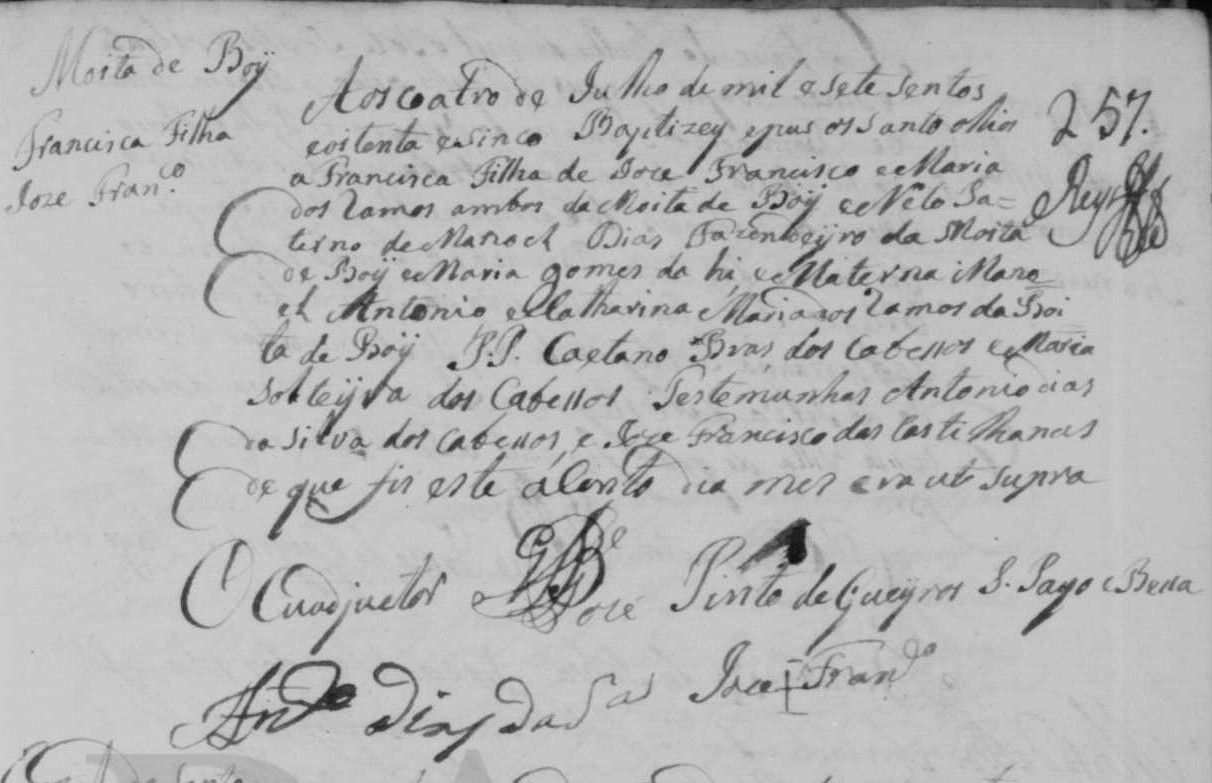 Moita de Boÿ
Francisca Filha
Joze Fran.co
257.
Reys
Aos coatro de Julho de mil e sete sentos
e oitenta e sinco Baptizey e pus os santo olhios
a Francisca Filha de Joce Francisco e Maria
dos Ramos ambos da Moita de Boÿ e Neto Pa=
terno de Manoel Dias Fazendeyro da Moita
de Boÿ e Maria gomes da hi, e Materna Mano
el Antonio e Catharina Maria dos Ramos da Moi
ta de Boÿ P.P. Caetano Bras dos Cabessos e Maria
Solteyra dos Cabessos Testemunhas Antonio dias
da Silva dos Cabessos, e Joce Francisco das Castelhanas
de que fis este acento dia mes e ra ut supra
O Cuadjuctor Joce Pinto de Gueyros S. Payo e
Ant.o Dias da S.a Joce + Fran.co